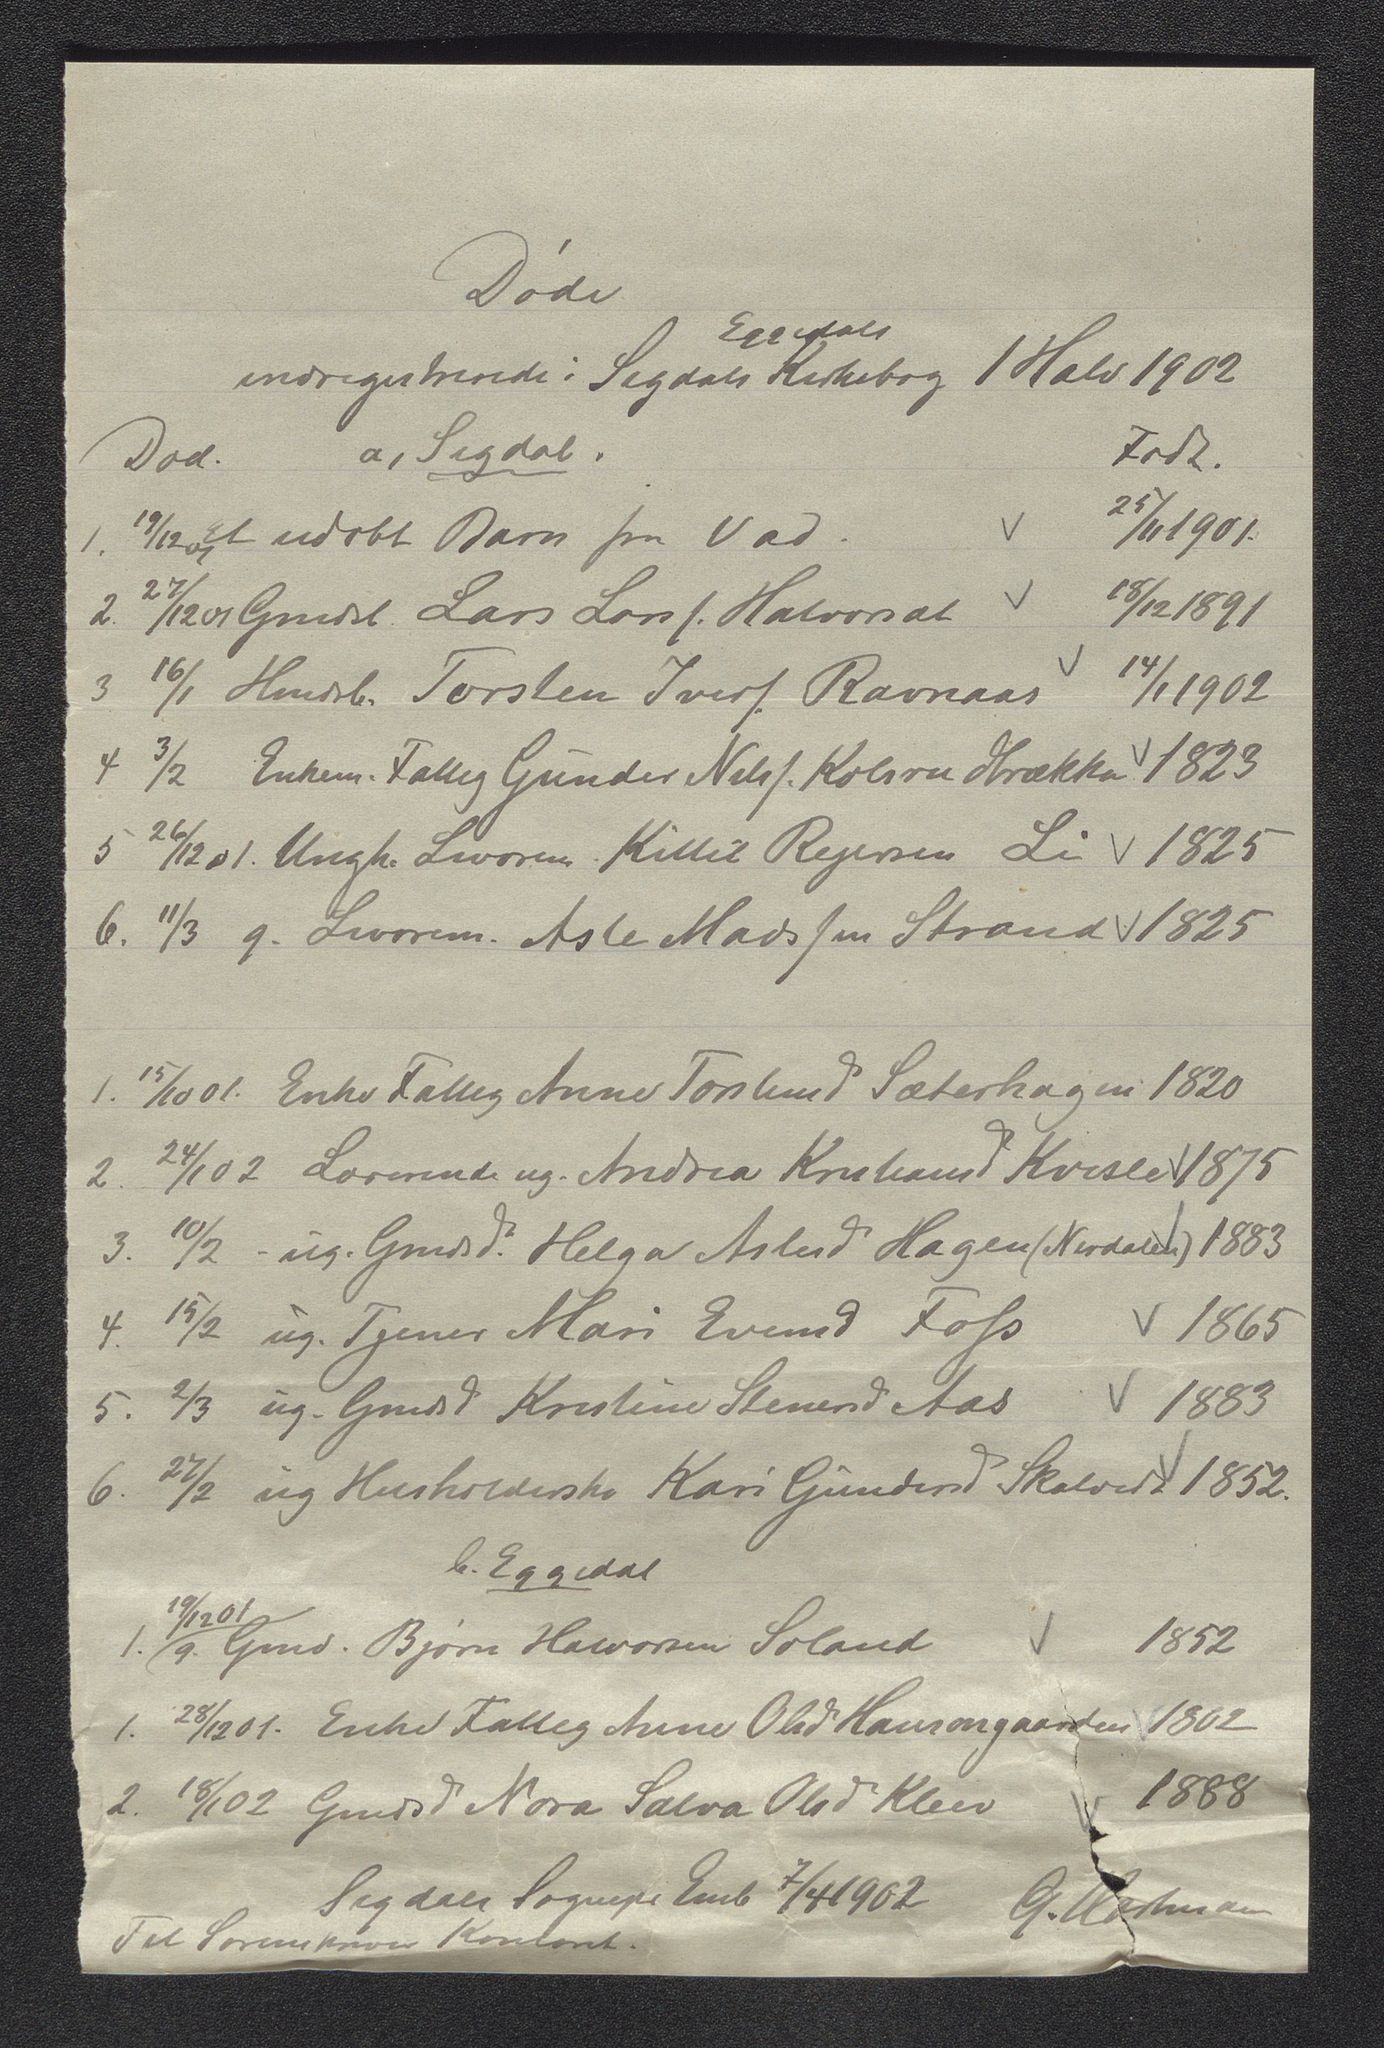 Døde
Eggedals
indregistrerede i Sigdals Kirkebog 1 Halv 1902
Død. a, Sigdal. Født.
1. 19/12 01 Et udøbt Barn fra Vad. V 25/11 1901.
2. 27/12 01 Gmdsb. Lars Larsf. Halvorsat V 18/12 1891
3 16/1 Hmdsb. Torsten Iversf. Ravnaas V 14/1 1902
4 3/2 Enkem. Fattig Gunder Nilsf. Kolsru Brækka V 1823
5 26/12 01. Ungk. Livørem. Kittil Reiersen Li V 1825
6. 11/3 g. Livørem. Asle Madsfen Strand V 1825
1. 15/10 01. Enke Fattig Anne Torstensd Sæterhagen 1820
2. 24/1 02 Lærerinde ug. Andrea Kristiansd Kvisle V 1875
3. 10/2 - ug. Gmdsd. Helga Aslesd Hagen (Nerdalen) V 1883
4. 15/2 ug. Tjener Mari Evensd Fofs V 1865
5. 2/3 ug. Gmdsd Kristine Stenersd Aas V 1883
6. 27/2 ug Husholderske Kari Gundersd Skalvedt V 1852.
b. Eggedal
19/12 01
1. g. Gmd. Bjørn Halvorsen Soland V 1852
1. 28/12 01. Enke Fattig Anne Olsd Hansongaarden V 1802
2. 18/1 02 Gmdsd Nora Salva Olsd Kleiv V 1888
Sigdals Sognepr Emb 7/4 1902 G.
Til Sorenskriver Kontoret.